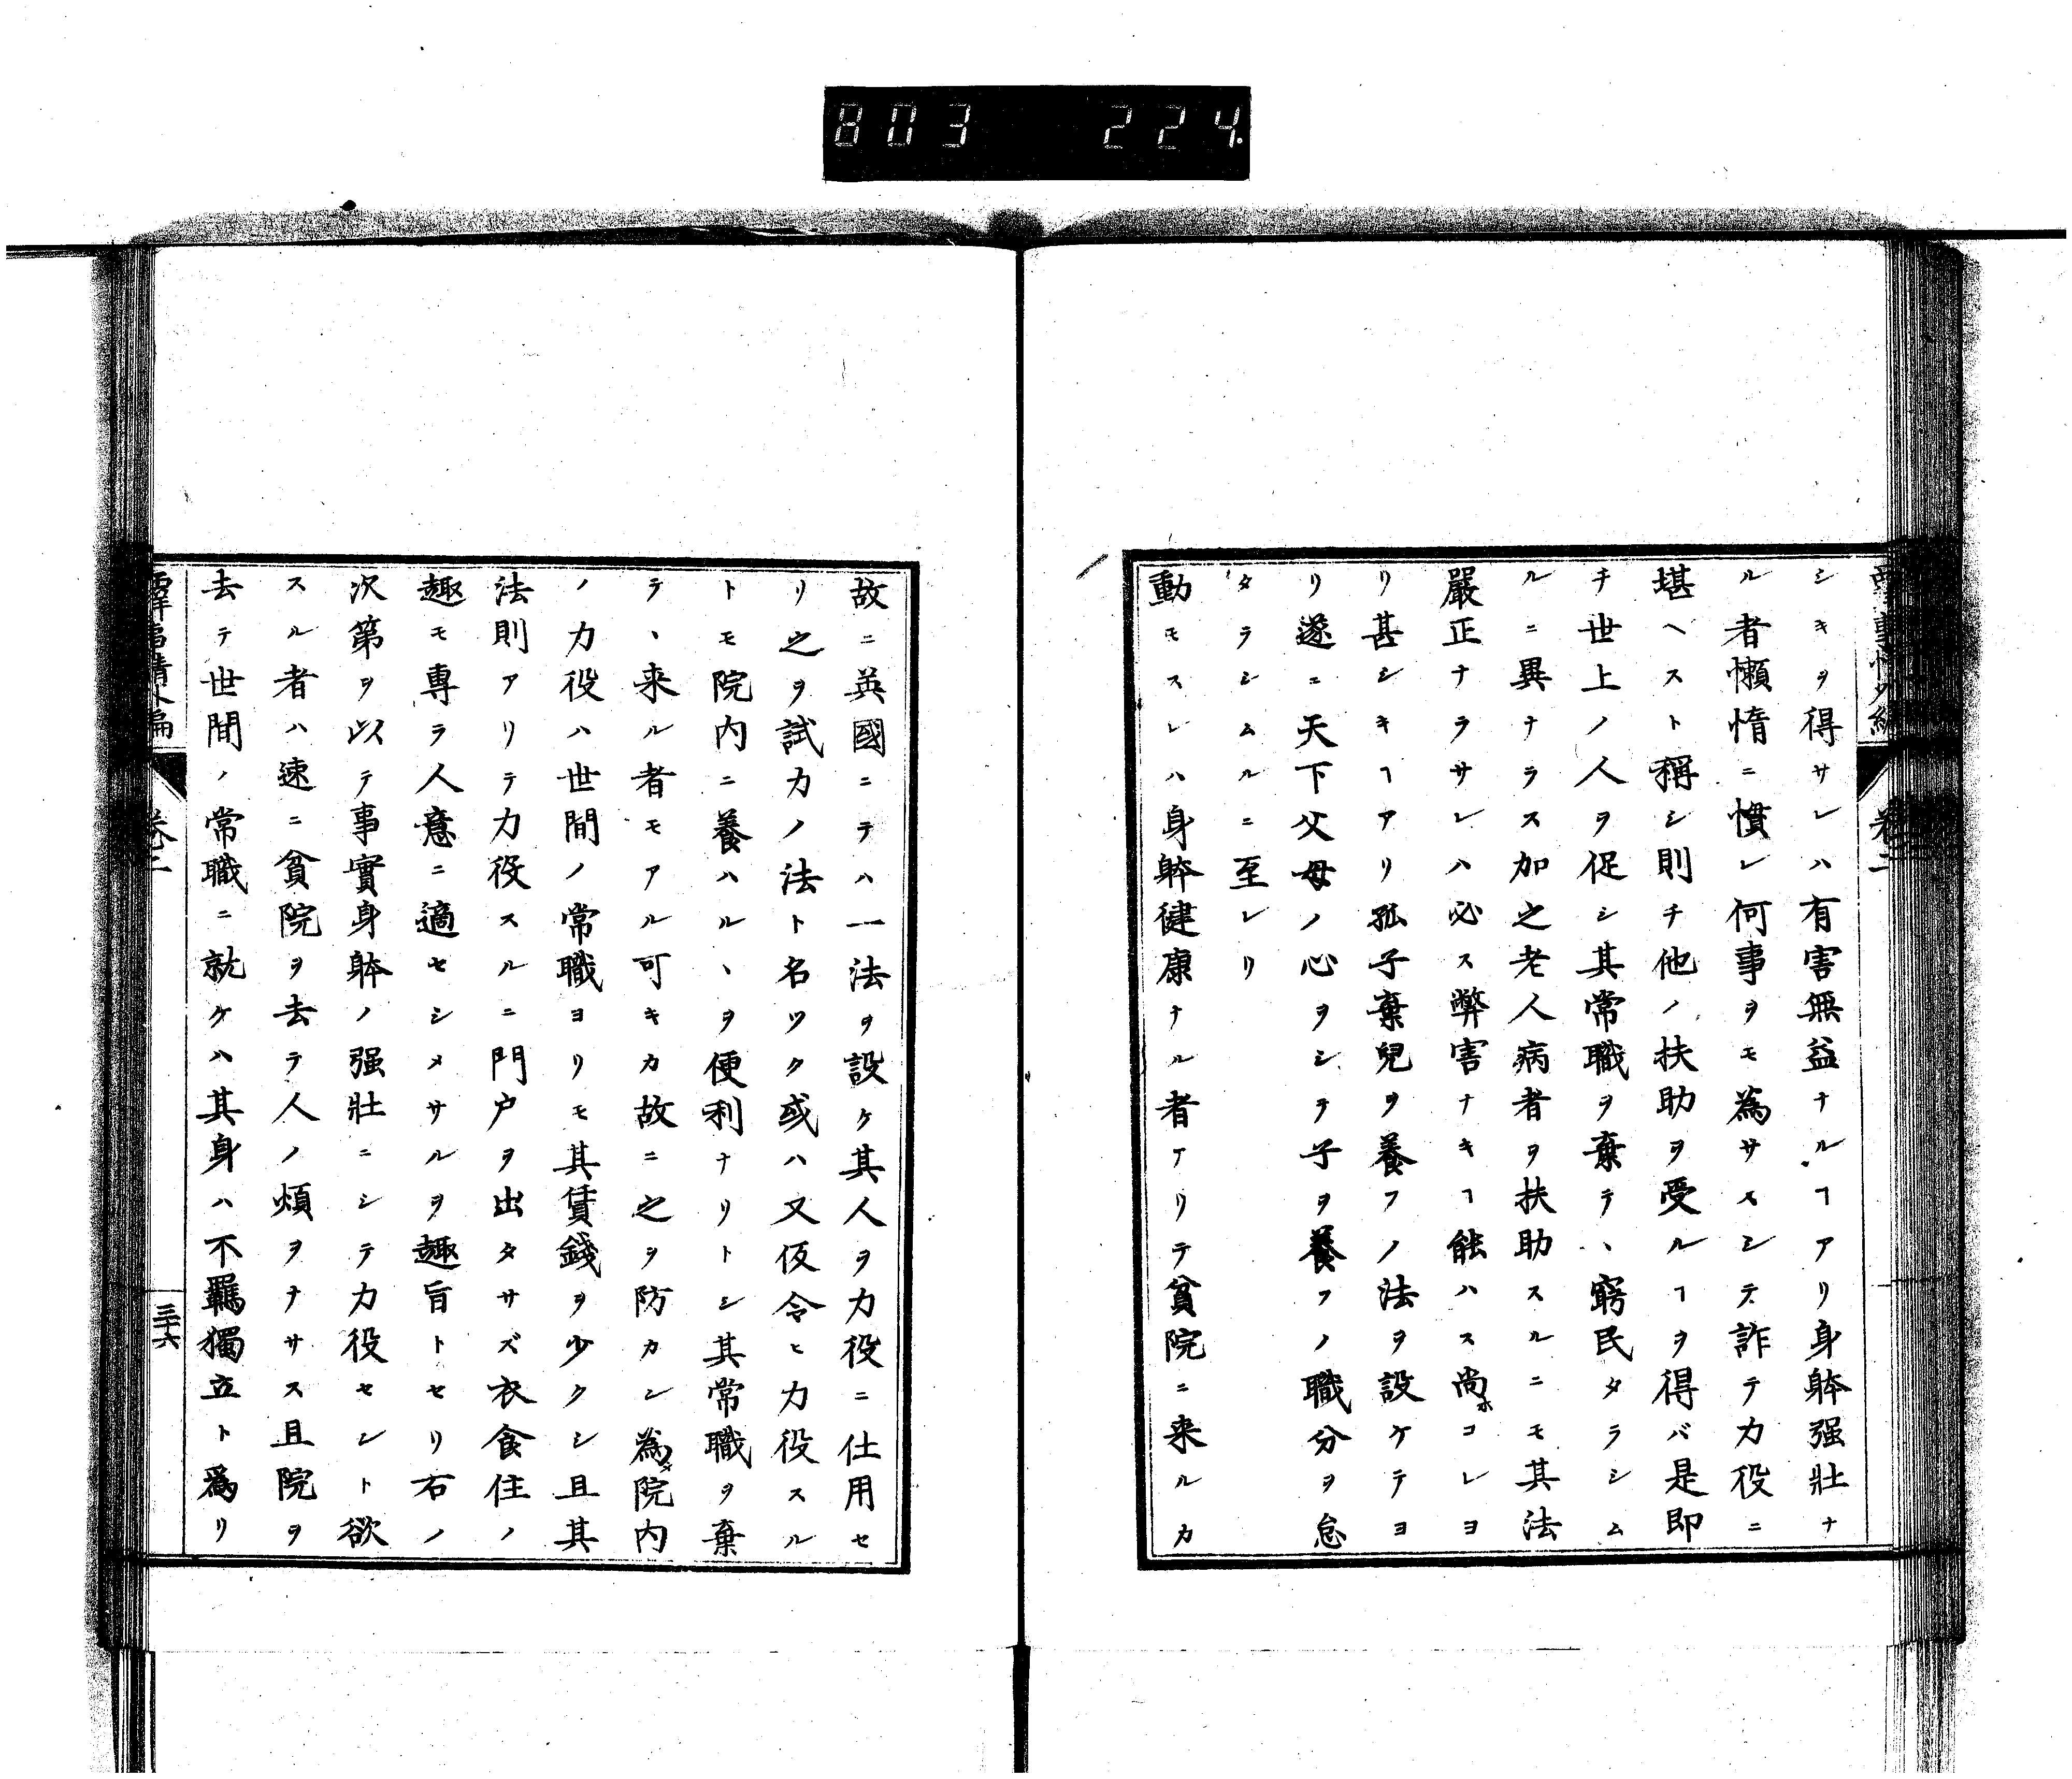 803 224
西洋事情外編 卷二
シキヲ得サレハ有害無益ナルヿアリ身躰强壯ナ
ル者懶惰ニ慣レ何事ヲモ為サスシテ詐テ力役ニ
堪ヘスト稱シ則チ他ノ扶助ヲ受ルヿヲ得バ是即
チ世上ノ人ヲ促シ其常職ヲ棄テヽ窮民タラシム
ルニ異ナラス加之老人病者ヲ扶助スルニモ其法
嚴正ナラサレハ必ス弊害ナキヿ能ハス尚ホコレヨ
リ甚シキヿアリ孤子棄兒ヲ養フノ法ヲ設ケテヨ
リ遂ニ天下父母ノ心ヲシテ子ヲ養フノ職分ヲ怠
タラシムルニ至レリ
動モスレハ身躰健康ナル者アリテ貧院ニ来ルカ
故ニ英國ニテハ一法ヲ設ケ其人ヲ力役ニ仕用セ
リ之ヲ試力ノ法ト名ツク或ハ又仮令ヒ力役スル
トモ院内ニ養ハルヽヲ便利ナリトシ其常職ヲ棄
テヽ来ル者モアル可キカ故ニ之ヲ防カシ為メ院内
ノ力役ハ世間ノ常職ヨリモ其賃錢ヲ少クシ且其
法則アリテ力役スルニ門户ヲ出タサズ衣食住ノ
趣モ專ラ人意ニ適セシメサルヲ趣旨トセリ右ノ
次第ヲ以テ事實身躰ノ强壯ニシテ力役セント欲
スル者ハ速ニ貧院ヲ去テ人ノ煩ヲナサス且院ヲ
去テ世間ノ常職ニ就ケハ其身ハ不羈獨立ト爲リ
西洋事情外編 卷二 三十六